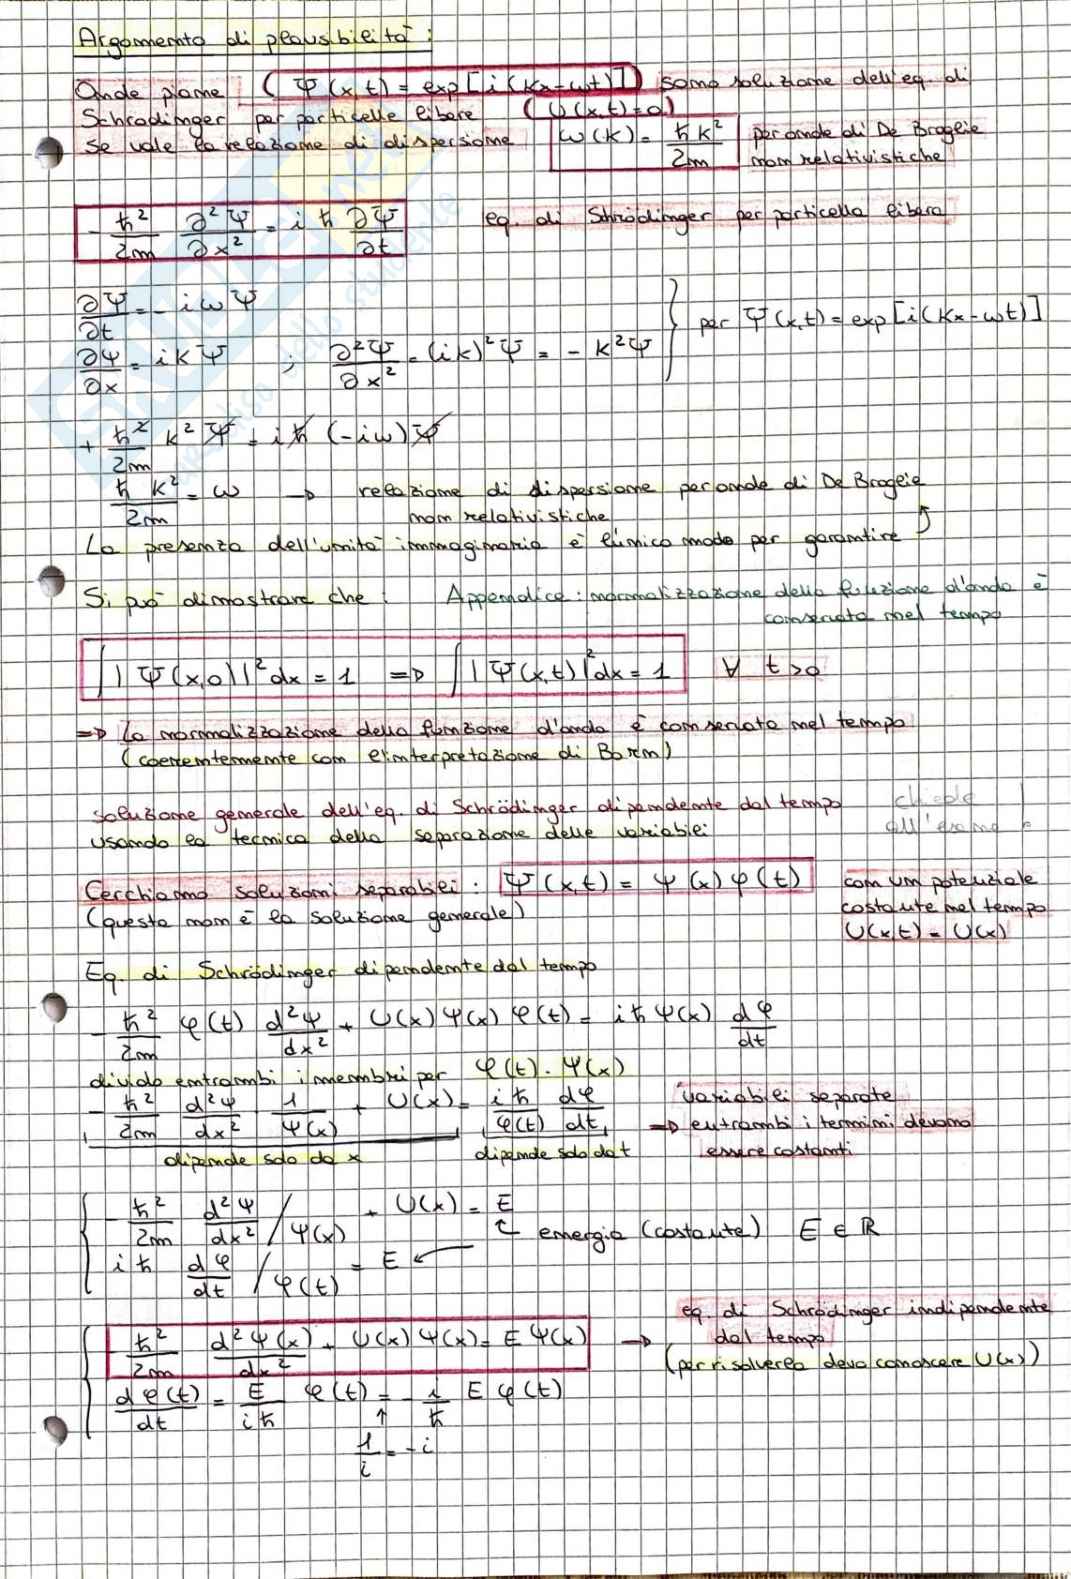 Argomento di plausibilità :
Onde piane ( Ψ(x,t) = exp[i(Kx-ωt)] ) sono soluzione dell'eq. di
Schrödinger per particelle libere ( U(x,t)=0 )
se vale la relazione di dispersione ω(K) = ħK²/2m per onde di De Broglie
non relativistiche
- ħ²/2m ∂²Ψ/∂x² = iħ ∂Ψ/∂t eq. di Schrödinger per particella libera
∂Ψ/∂t = - iωΨ
∂Ψ/∂x = iKΨ ; ∂²Ψ/∂x² = (iK)²Ψ = - K²Ψ } per Ψ(x,t) = exp[i(Kx-ωt)]
+ ħ²/2m K² Ψ = iħ (-iω)Ψ
ħK²/2m = ω → relazione di dispersione per onde di De Broglie
non relativistiche
La presenza dell'unità immaginaria è l'unico modo per garantire
Si può dimostrare che : Appendice: normalizzazione della funzione d'onda è
conservata nel tempo
∫|Ψ(x,0)|²dx = 1 ⇒ ∫|Ψ(x,t)|²dx = 1 ∀ t>0
⇒ La normalizzazione della funzione d'onda è conservata nel tempo
(coerentemente con l'interpretazione di Born)
soluzione generale dell'eq. di Schrödinger dipendente dal tempo chiede
usando la tecnica della separazione delle variabili all'esame
Cerchiamo soluzioni separabili : Ψ(x,t) = ψ(x) φ(t) con un potenziale
(questa non è la soluzione generale) costante nel tempo
U(x,t) = U(x)
Eq. di Schrödinger dipendente dal tempo
- ħ²/2m φ(t) d²ψ/dx² + U(x) ψ(x) φ(t) = iħ ψ(x) dφ/dt
divido entrambi i membri per φ(t) · ψ(x)
- ħ²/2m d²ψ/dx² 1/ψ(x) + U(x) = iħ/φ(t) dφ/dt variabili separate
⇒ entrambi i termini devono
dipende solo da x dipende solo da t essere costanti
- ħ²/2m d²ψ/dx² / ψ(x) + U(x) = E
energia (costante) E ∈ ℝ
iħ dφ/dt / φ(t) = E
eq. di Schrödinger indipendente
- ħ²/2m d²ψ(x)/dx² + U(x) ψ(x) = E ψ(x) → dal tempo
(per risolverla devo conoscere U(x))
dφ(t)/dt = E/iħ φ(t) = - i/ħ E φ(t)
↑
1/i = - i